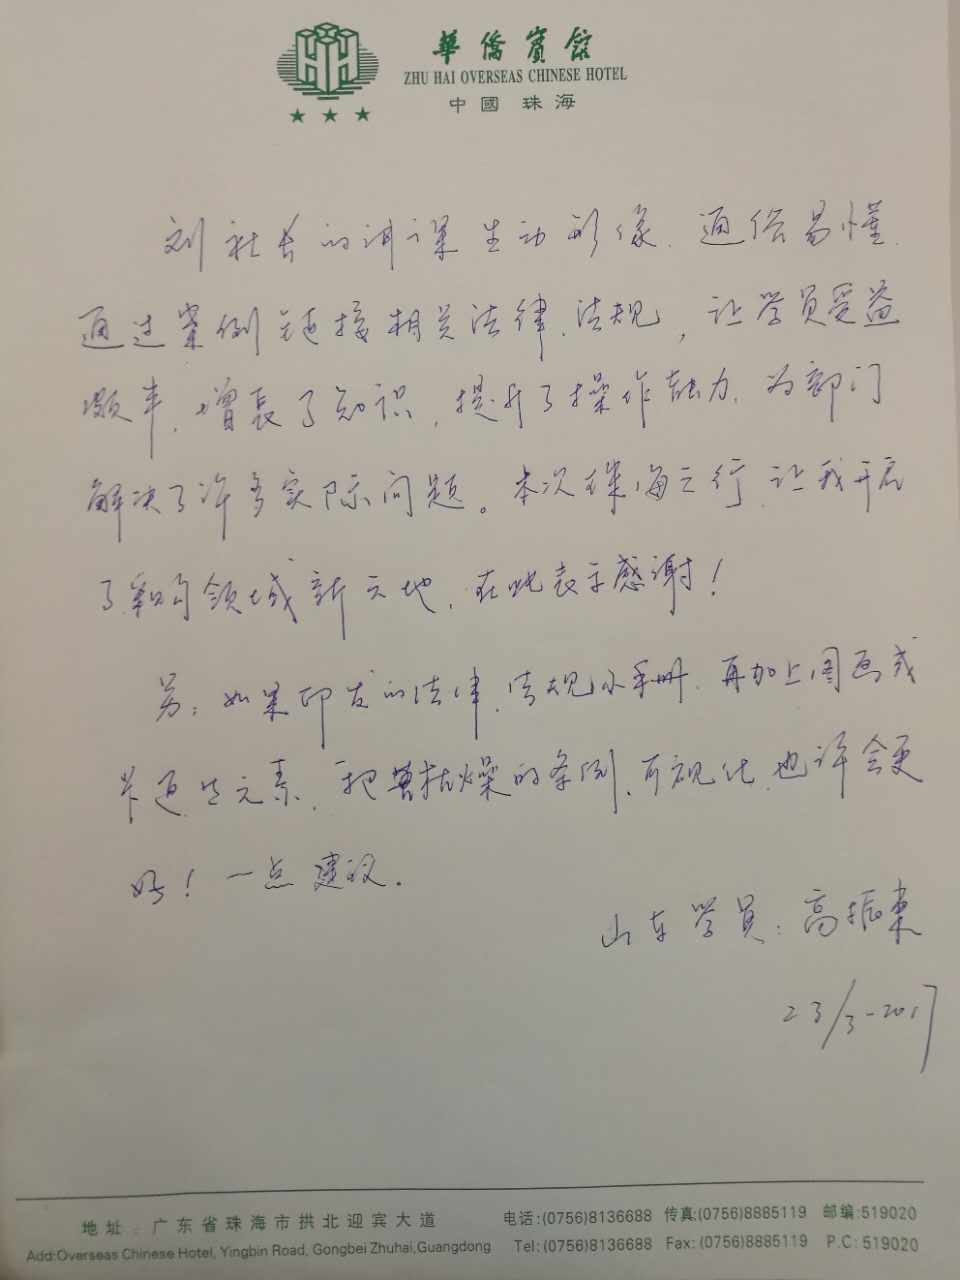 華僑賓館
ZHU HAI OVERSEAS CHINESE HOTEL
中國 珠海
刘社长的讲课生动形象、通俗易懂、
通过案例链接相关法律、法规，让学员受益
颇丰，增长了知识，提升了操作能力，为部门
解决了许多实际问题。本次珠海之行，让我开启
了采购领域新天地，在此表示感谢！
另：如果印发的法律、法规小手册，再加上图画或
卡通等元素，把枯燥的条例，可视化，也许会更
好！一点建议.
山东学员：高振东
23/3-2017
地址：广东省珠海市拱北迎宾大道 电话:(0756)8136688 传真:(0756)8885119 邮编:519020
Add:Overseas Chinese Hotel, Yingbin Road, Gongbei Zhuhai,Guangdong Tel:(0756)8136688 Fax:(0756)8885119 P.C:519020